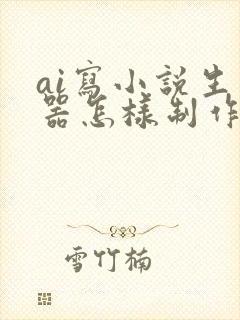 ai寫小說生
器怎樣制作
雪竹楠